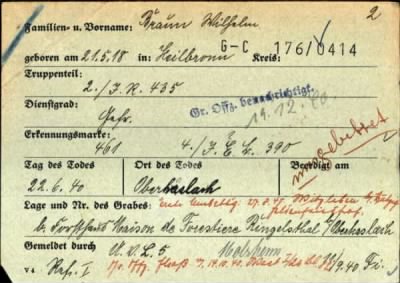 2
Familien- u. Vorname: Braun Wilhelm
G-C 176/0414
geboren am 21.5.18 in: Heilbronn Kreis:
Truppenteil:
2./J.R. 435
Dienstgrad:
Gefr.
Gr. Offz. benachrichtigt.
19.12.40
Erkennungsmarke:
461 4./J.E.B. 390
umgebettet
Tag des Todes Ort des Todes Beerdigt am
22.6.40 Oberhaslach
Lage und Nr. des Grabes:
b. Forsthaus Maison de Forestiere Ringelsthal / Oberhaslach
Gemeldet durch A.V.L. 5 Molsheim
v4 Ref. I 9.40